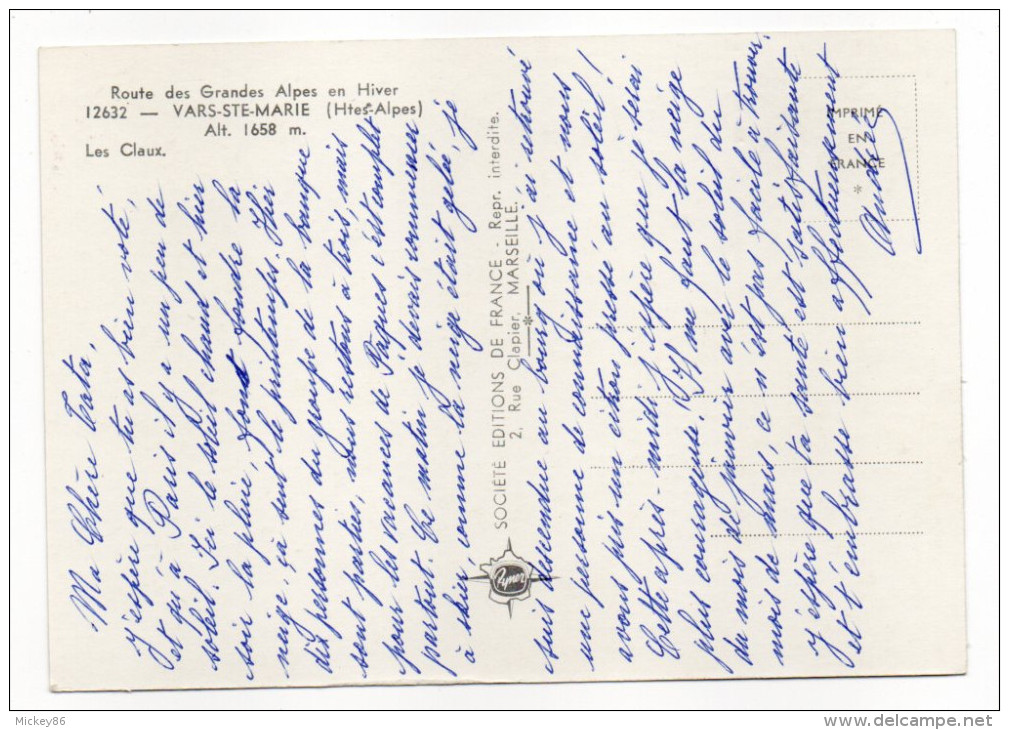 Route des Grandes Alpes en Hiver
12632 — VARS-STE-MARIE (Htes-Alpes)
Alt. 1658 m.
Les Claux.
Ma Chère Tata,
J'espère que tu as bien voté,
et qu'à Paris il y a un peu de
soleil. Ici le soleil chaud et hier
soir la pluie, font fondre la
neige, çà sent le printemps. Hier
dix personnes du groupe de la banque
sont parties, nous restons à trois, mais
pour les vacances de Pâques c'est complet
partout. Ce matin je devais commencer
à skier, comme la neige était gelée, je
suis descendue au bourg où j'ai retrouvé
une personne de connaissance et nous
avons pris un citron pressé au soleil!
Cette après-midi j'espère que je serai
plus courageuse! Il me faut la neige
du mois de janvier avec le soleil du
mois de mars, ce n'est pas facile à trouver.
J'espère que ta santé est satisfaisante
et t'embrasse bien affectueusement
Andrée
SOCIÉTÉ EDITIONS DE FRANCE - Repr. interdite.
2, Rue Clapier, MARSEILLE.
IMPRIMÉ
EN
FRANCE
*
Mickey86
www.delcampe.net